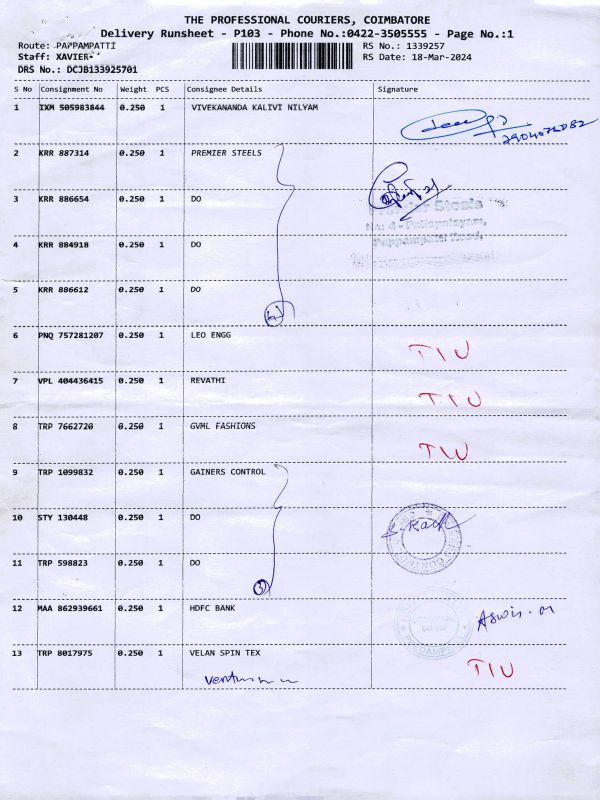 THE PROFESSIONAL COURIERS, COIMBATORE
Delivery Runsheet - P103 - Phone No.:0422-3505555 - Page No.:1
Route: PAPPAMPATTI RS No.: 1339257
Staff: XAVIER RS Date: 18-Mar-2024
DRS No.: DCJB133925701
S No Consignment No Weight PCS Consignee Details Signature
1 IXM 505983844 0.250 1 VIVEKANANDA KALIVI NILYAM
2 KRR 887314 0.250 1 PREMIER STEELS
3 KRR 886654 0.250 1 DO
Premier Steels
Pappampatti Road,
4 KRR 884918 0.250 1 DO
5 KRR 886612 0.250 1 DO
4
6 PNQ 757281207 0.250 1 LEO ENGG
TIU
7 VPL 404436415 0.250 1 REVATHI
TIU
8 TRP 7662720 0.250 1 GVML FASHIONS
TIU
9 TRP 1099832 0.250 1 GAINERS CONTROL
10 STY 130448 0.250 1 DO
11 TRP 598823 0.250 1 DO
3
12 MAA 862939661 0.250 1 HDFC BANK
13 TRP 8017975 0.250 1 VELAN SPIN TEX
TIU